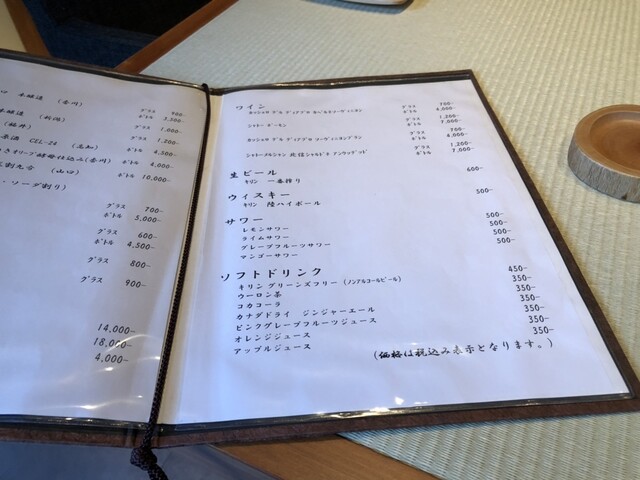 本醸造 (香川)
グラス 900-
ボトル 3,500-
本醸造 (新潟)
(福井) グラス 1,000-
原酒 CEL-24 (高知) グラス 1,200-
ボトル 4,500-
さぬきオリーブ酵母仕込み(香川) ボトル 4,000-
(山口) ボトル 10,000-
・ソーダ割り)
グラス 700-
ボトル 5,000-
グラス 600-
ボトル 4,500-
グラス 800-
グラス 900-
14,000-
18,000-
4,000-
ワイン
カッシェロ デル ディアブロ カベルネソーヴィニヨン グラス 700-
ボトル 4,000-
シャトー グラス 1,200-
ボトル 7,000-
カッシェロ デル ディアブロ ソーヴィニヨンブラン グラス 700-
ボトル 4,000-
シャトーメルシャン 北信シャルドネ アンウッデッド グラス 1,200-
ボトル 7,000-
生ビール
キリン 一番搾り 600-
ウィスキー
キリン 陸ハイボール 500-
サワー
レモンサワー 500-
ライムサワー 500-
グレープフルーツサワー 500-
マンゴーサワー 500-
ソフトドリンク
キリン グリーンズフリー (ノンアルコールビール) 450-
ウーロン茶 350-
コカコーラ 350-
カナダドライ ジンジャーエール 350-
ピンクグレープフルーツジュース 350-
オレンジジュース 350-
アップルジュース 350-
(価格は税込み表示となります。)